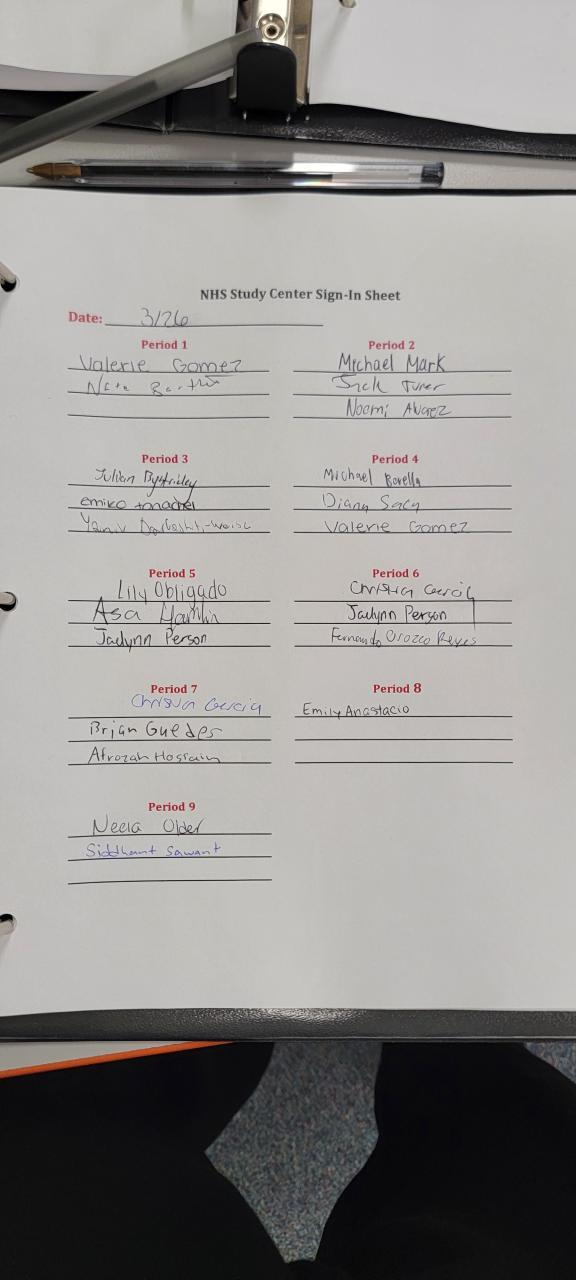 NHS Study Center Sign-In Sheet
Date: 3/26
Period 1
Valerie Gomez
Period 2
Michael Mark
Jack Turer
Noemi Alvarez
Period 3
Julian
emiko
Yaniv
Period 4
Michael Borella
Diana Sacy
Valerie Gomez
Period 5
Lily Obligado
Asa Hamlin
Jaelynn Person
Period 6
Christian Garcia
Jaelynn Person
Fernando Orozco Reyes
Period 7
Christian Garcia
Brian Guedes
Afrozah Hossain
Period 8
Emily Anastacio
Period 9
Neela Older
Siddhant Sawant